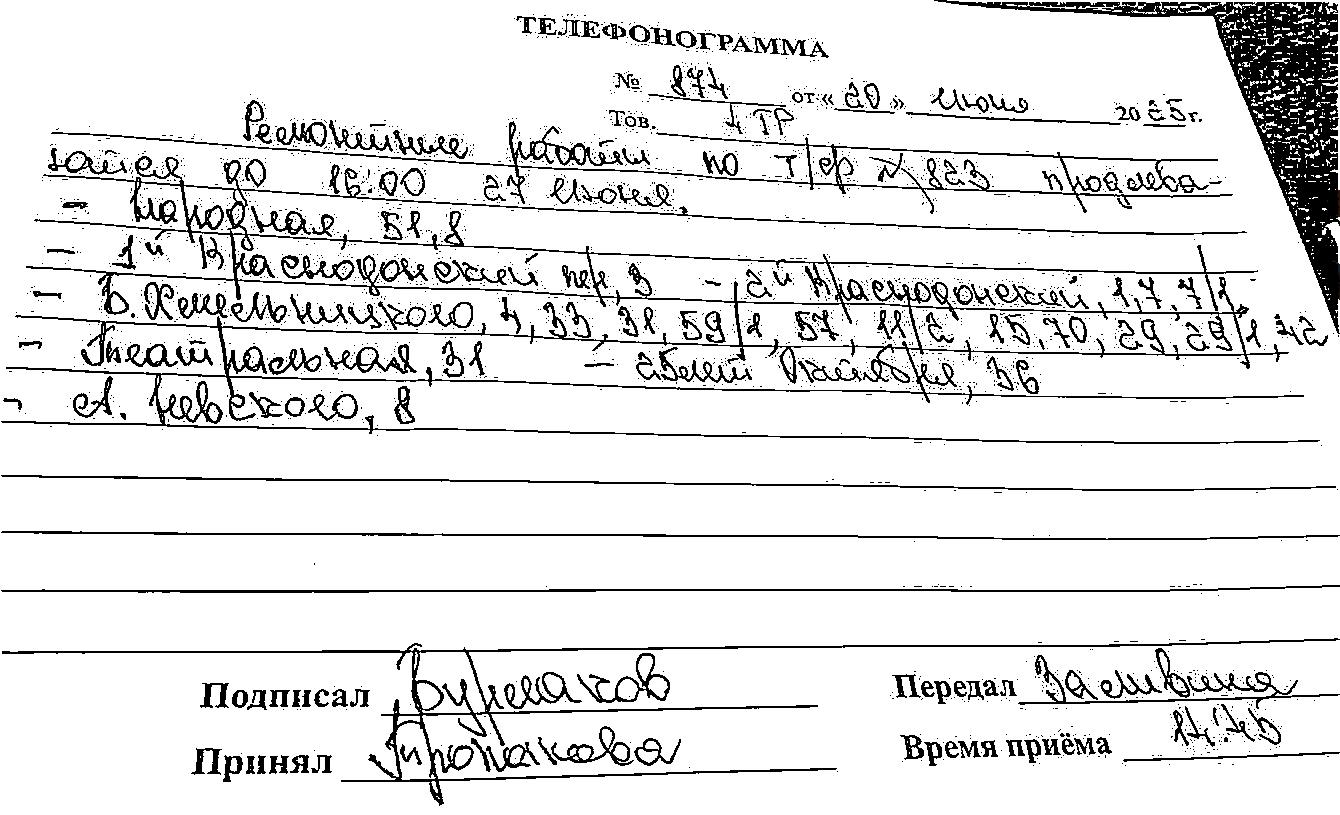 ТЕЛЕФОНОГРАММА
№ 874 от «20» июня 2025г.
Тов. 4 ТР
Ремонтные работы по т/ф № 823 продлева-
ются до 16:00 27 июня.
- Народная, 51, 8
- 1й Краснодонский пер, 3 - 2й Краснодонский, 1, 7, 7/1,
- Б. Хмельницкого, 4, 33, 31, 59/1, 57, 11/2, 15, 70, 29, 29/1, 42
- Театральная, 31 - 25 лет Октября, 36
- А. Невского, 8
Подписал Бурмаков Передал Заливина
Принял Время приёма